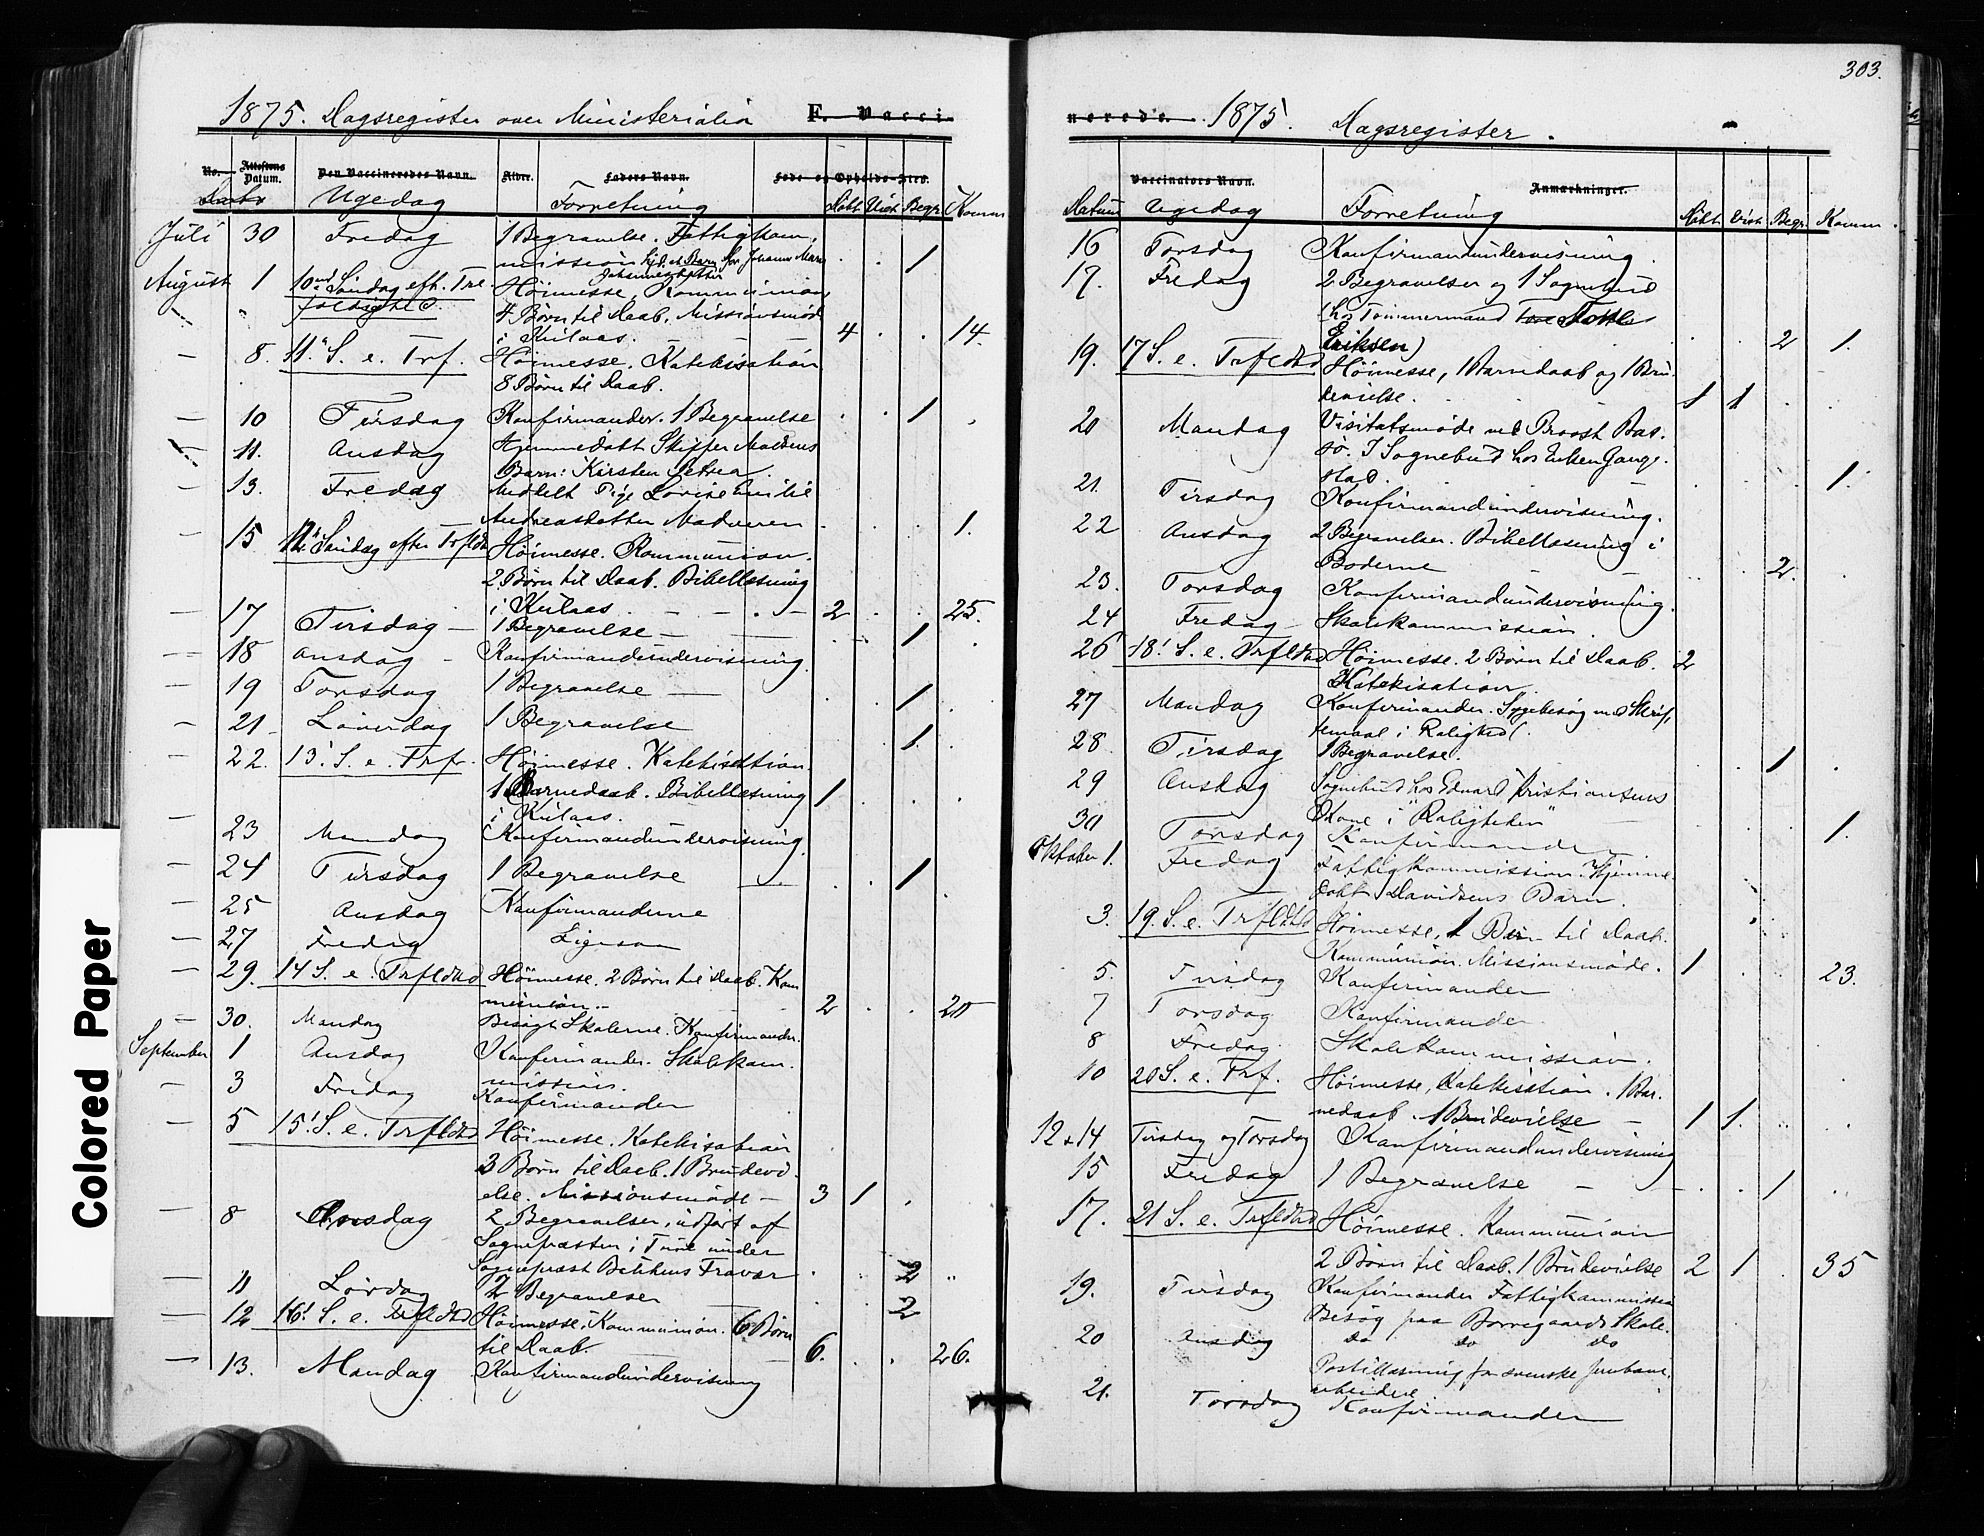 303.
1875. Dagsregister over Ministerialia F. Vacci-
No. Attestens Datum. Den Vaccineredes Navn. Alder. Faders Navn. Føde- og Opholds-Sted.
Dato Ugedag Forretning Døbt Viet Begr. Komm.
Juli 30 Fredag 1 Begravelse. Fattigkom-
mission 1
August 1 10nd Søndag eft. Tre- Høimesse. Kommunion
foldighed. 4 Børn til Daab. Missionsmøde
i Kulaas. 4 14.
8. 11' S. e. Trf. Høimesse. Katekisation
8 Børn til Daab.
10 Tirsdag Konfirmander. 1 Begravelse 1
11. Onsdag Hjemmedøbt Skipper Madsens
Barn: Kirsten Petrea.
13. Fredag Meddelt Pige Lovise Emilie
Andreasdatter 1.
15. 12' Søndag efter Trfldhd Høimesse. Kommunion.
2 Børn til Daab. Bibellæsning
i Kulaas. 2 25.
17 Tirsdag 1 Begravelse 1
18 Onsdag Konfirmandundervisning.
19 Torsdag 1 Begravelse 1
21 Løverdag 1 Begravelse 1
22. 13' S. e. Trf. Høimesse. Katekisation.
1 Barnedaab. Bibellæsning 1
i Kulaas.
23 Mandag Konfirmandundervisning.
24 Tirsdag 1 Begravelse 1
25 Onsdag Konfirmanderne
27 Fredag Ligesaa
29. 14 S. e. Trfldhd Høimesse. 2 Børn til Daab. Kom-
munion. 2 20
30. Mandag Besøgt Skolerne. Konfirmander.
September 1 Onsdag Konfirmander. Skolekom-
mission.
3 Fredag Konfirmander
5 15' S. e. Trfldhd Høimesse. Katekisation
3 Børn til Daab. 1 Brudevi-
else. Missionsmøde 3 1
8 Onsdag 2 Begravelser, udført af
Sognepræsten i Tune under
Sognepræst Fravær 2
11 Lørdag 2 Begravelser 2
12 16' S. e. Trfldhd Høimesse, Kommunion. 6 Børn
til Daab 6. 26.
13. Mandag Konfirmandundervisning
nerede. 1875. Dagsregister.
Vaccinators Navn. Anmærkninger.
Datum Ugedag Forretning Døbt Viet Begr. Komm.
16 Torsdag Konfirmandundervisning.
17. Fredag 2 Begravelser og 1 Sognebud
(hos Tømmermand
Eriksen) 2 1.
19. 17 S. e. Trfldhd Høimesse, 1 Barnedaab og 1 Bru-
devielse. 1 1
20 Mandag Visitatsmøde ved Provst Bas-
sø. 1 Sognebud hos Enken Gange-
stad. 1.
21. Tirsdag Konfirmandundervisning.
22 Onsdag 2 Begravelser. Bibellæsning i
Boderne 2.
23. Torsdag Konfirmandundervisning.
24 Fredag Skolekommission.
26 18' S. e. Trfldhd Høimesse. 2 Børn til Daab. 2
Katekisation
27 Mandag Konfirmander. Sygebesøg med Skrif-
temaal i Rolighed.
28. Tirsdag 1 Begravelse. 1
29 Onsdag Sognebud hos Edvard Kristiansens
Kone i "Roligheden" 1.
30 Torsdag Konfirmander
Oktober 1. Fredag Fattigkommission. Hjemme-
døbt Davidsens Barn.
3. 19. S. e. Trfldhd Høimesse, 1 Barn til Daab.
Kommunion. Missionsmøde. 1 23.
5. Tirsdag Konfirmander
7 Torsdag Konfirmander.
8 Fredag Skolekommission.
10 20 S. e. Trf. Høimesse, Katekisation. 1 Bar-
nedaab. 1 Brudevielse 1 1.
12 & 14 Tirsdag og Torsdag Konfirmandundervisning
15 Fredag 1 Begravelse 1
17. 21 S. e. Trfldhd Høimesse. Kommunion
2 Børn til Daab. 1 Brudevielse 2 1 35
19. Tirsdag Konfirmander Fattigkommission
Besøg paa Borregaards Skole.
20 Onsdag Do Do Do
Postillæsning for svenske Jernbane-
arbeidere.
21. Torsdag Konfirmander
Colored Paper